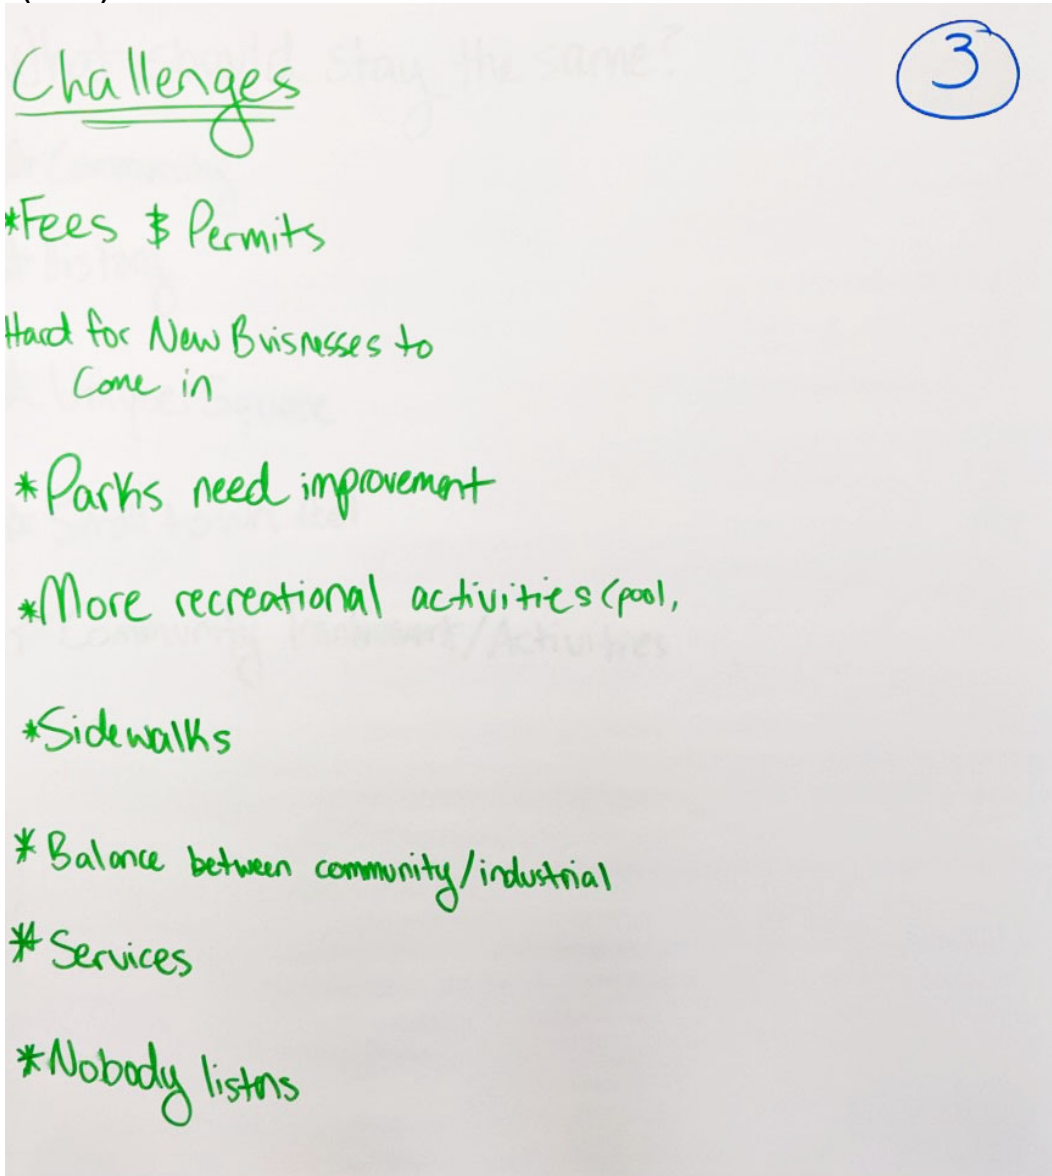 Challenges
3
*Fees & Permits
Hard for New Buisnesses to
Come in
*Parks need improvement
*More recreational activities (pool,
*Sidewalks
*Balance between community/industrial
*Services
*Nobody listns